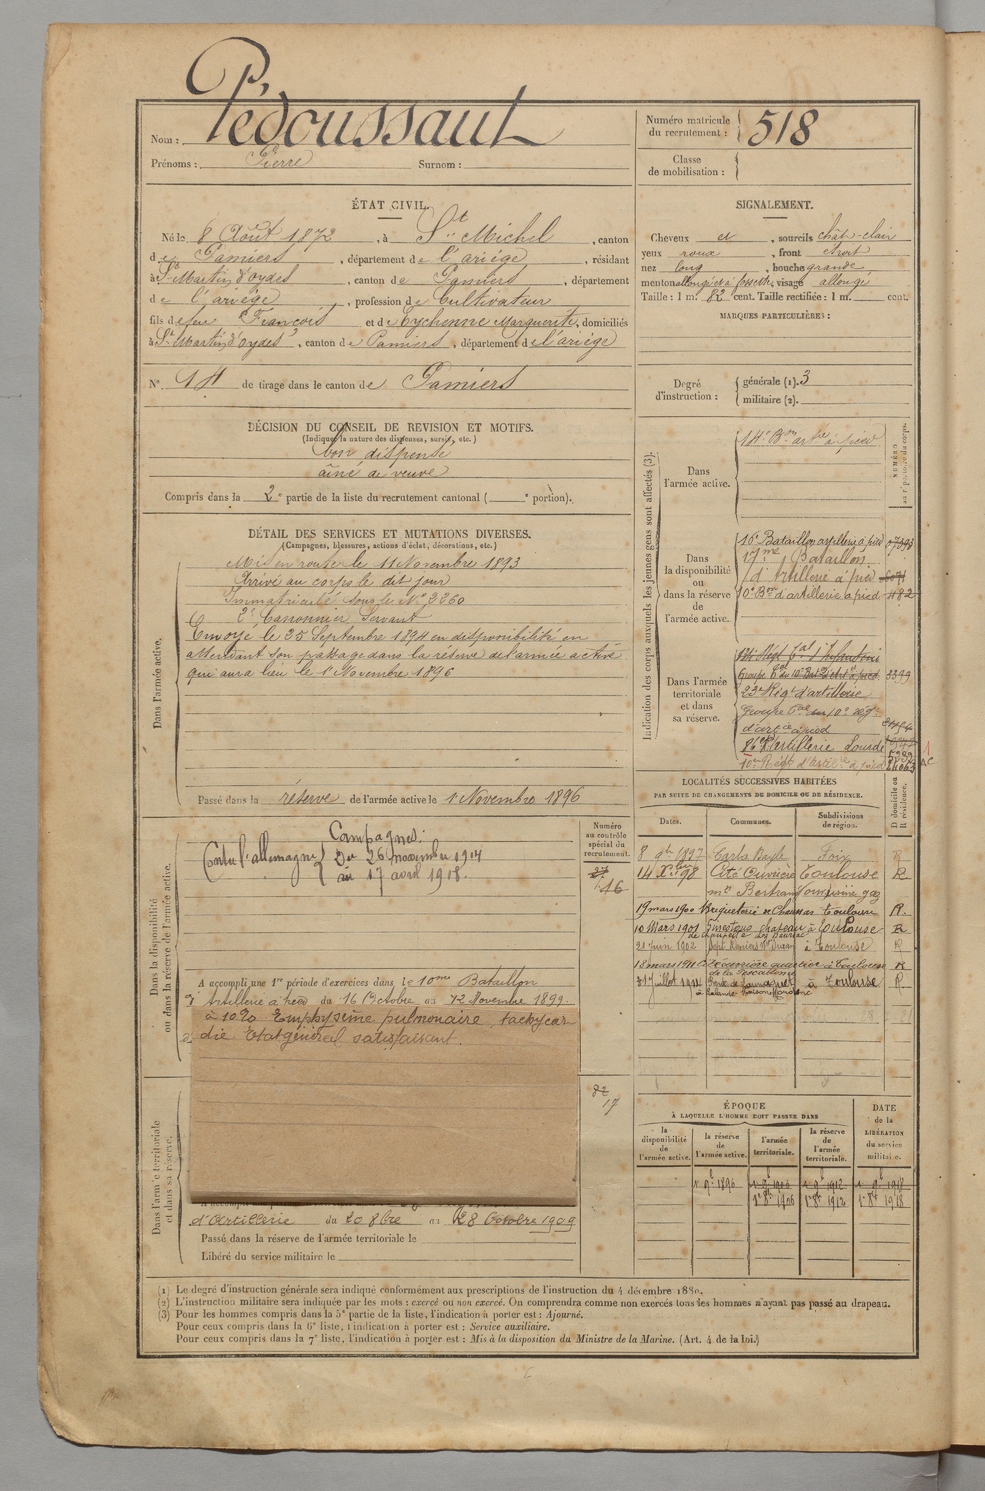 Nom : Pédoussaut
Prénoms : Pierre Surnom :
Numéro matricule du recrutement : 518
Classe de mobilisation :
ÉTAT CIVIL.
Né le 8 Août 1872, à St Michel, canton
de Pamiers, département de l'ariège, résidant
à St Martin d'oydes, canton de Pamiers, département
de l'ariège, profession de Cultivateur
fils de feu François et de Eychenne Marguerite, domiciliés
à St Martin d'oydes, canton de Pamiers, département de l'ariège
N° 14 de tirage dans le canton de Pamiers
SIGNALEMENT.
Cheveux et, sourcils chât-clair
yeux roux, front étroit
nez long, bouche grande,
menton allongé et à fossette, visage allongé
Taille : 1 m. 82 cent. Taille rectifiée : 1 m. cent.
MARQUES PARTICULIÈRES :
Degré d'instruction : générale (1). 3
militaire (2).
DÉCISION DU CONSEIL DE REVISION ET MOTIFS.
(Indiquer la nature des dispenses, sursis, etc.)
bon dispensé
aîné de veuve
Compris dans la 2e partie de la liste du recrutement cantonal ( e portion).
DÉTAIL DES SERVICES ET MUTATIONS DIVERSES.
(Campagnes, blessures, actions d'éclat, décorations, etc.)
Dans l'armée active.
Mis en route le 11 Novembre 1893
Arrivé au corps le dit jour
Immatriculé sous le N° 2260
2e Canonnier Servant
Envoyé le 25 Septembre 1894 en disponibilité en
attendant son passage dans la réserve de l'armée active
qui aura lieu le 1er Novembre 1896
Passé dans la réserve de l'armée active le 1 Novembre 1896
Dans la disponibilité ou dans la réserve de l'armée active.
Campagnes :
Contre l'allemagne Du 26 novembre 1914
au 17 avril 1918.
A accompli une 1re période d'exercices dans le 10me Bataillon
d'Artillerie à pied du 16 Octobre au 12 Novembre 1899.
à 10% Emphysème pulmonaire, tachycar
die Etat général satisfaisant.
Numéro au contrôle spécial du recrutement.
16
82
17
Dans l'armée territoriale et dans sa réserve.
d'Artillerie du 20 8bre au 28 Octobre 1909
Passé dans la réserve de l'armée territoriale le
Libéré du service militaire le
Indication des corps auxquels les jeunes gens sont affectés (3).
NUMÉRO au répertoire du corps.
Dans l'armée active.
14e Bon artie à pied
Dans la disponibilité ou dans la réserve de l'armée active.
16e Bataillon artillerie à pied 07393
17me Bataillon
d'Artillerie à pied 6071
10e Bon d'artillerie à pied 482
Dans l'armée territoriale et dans sa réserve.
Groupe tal du 10e Bat. d'art. à pied. 3399
23e Régt d'artillerie
Groupe tal du 10e Régt
d'artie à pied
86e R d'artillerie Lourde
10e Régt d'artie à pied
LOCALITÉS SUCCESSIVES HABITÉES
PAR SUITE DE CHANGEMENTS DE DOMICILE OU DE RÉSIDENCE.
D domicile ou R résidence.
Dates. Communes. Subdivisions de région.
8 9bre 1897 Carla Bayle Foix R
14 Xbre 98 Cité Ouvrière Toulouse R
mon Bertrand
19 mars 1900 Briqueterie de Toulouse R.
10 Mars 1901 château à Toulouse R
21 Juin 1902 à Toulouse R
18 mars 1910 à Toulouse R
31 Juillet 1911 à Toulouse R
ÉPOQUE
À LAQUELLE L'HOMME DOIT PASSER DANS
DATE de la LIBÉRATION du service militaire.
la disponibilité de l'armée active.
la réserve de l'armée active.
l'armée territoriale.
la réserve de l'armée territoriale.
1 9b 1896 1 9b 1906 1 9b 1912 1 9b 1918
1er 8b 1906 1er 8b 1912 1er 8b 1918
(1) Le degré d'instruction générale sera indiqué conformément aux prescriptions de l'instruction du 4 décembre 1889.
(2) L'instruction militaire sera indiquée par les mots : exercé ou non exercé. On comprendra comme non exercés tous les hommes n'ayant pas passé au drapeau.
(3) Pour les hommes compris dans la 5e partie de la liste, l'indication à porter est : Ajourné.
Pour ceux compris dans la 6e liste, l'indication à porter est : Service auxiliaire.
Pour ceux compris dans la 7e liste, l'indication à porter est : Mis à la disposition du Ministre de la Marine. (Art. 4 de la loi.)